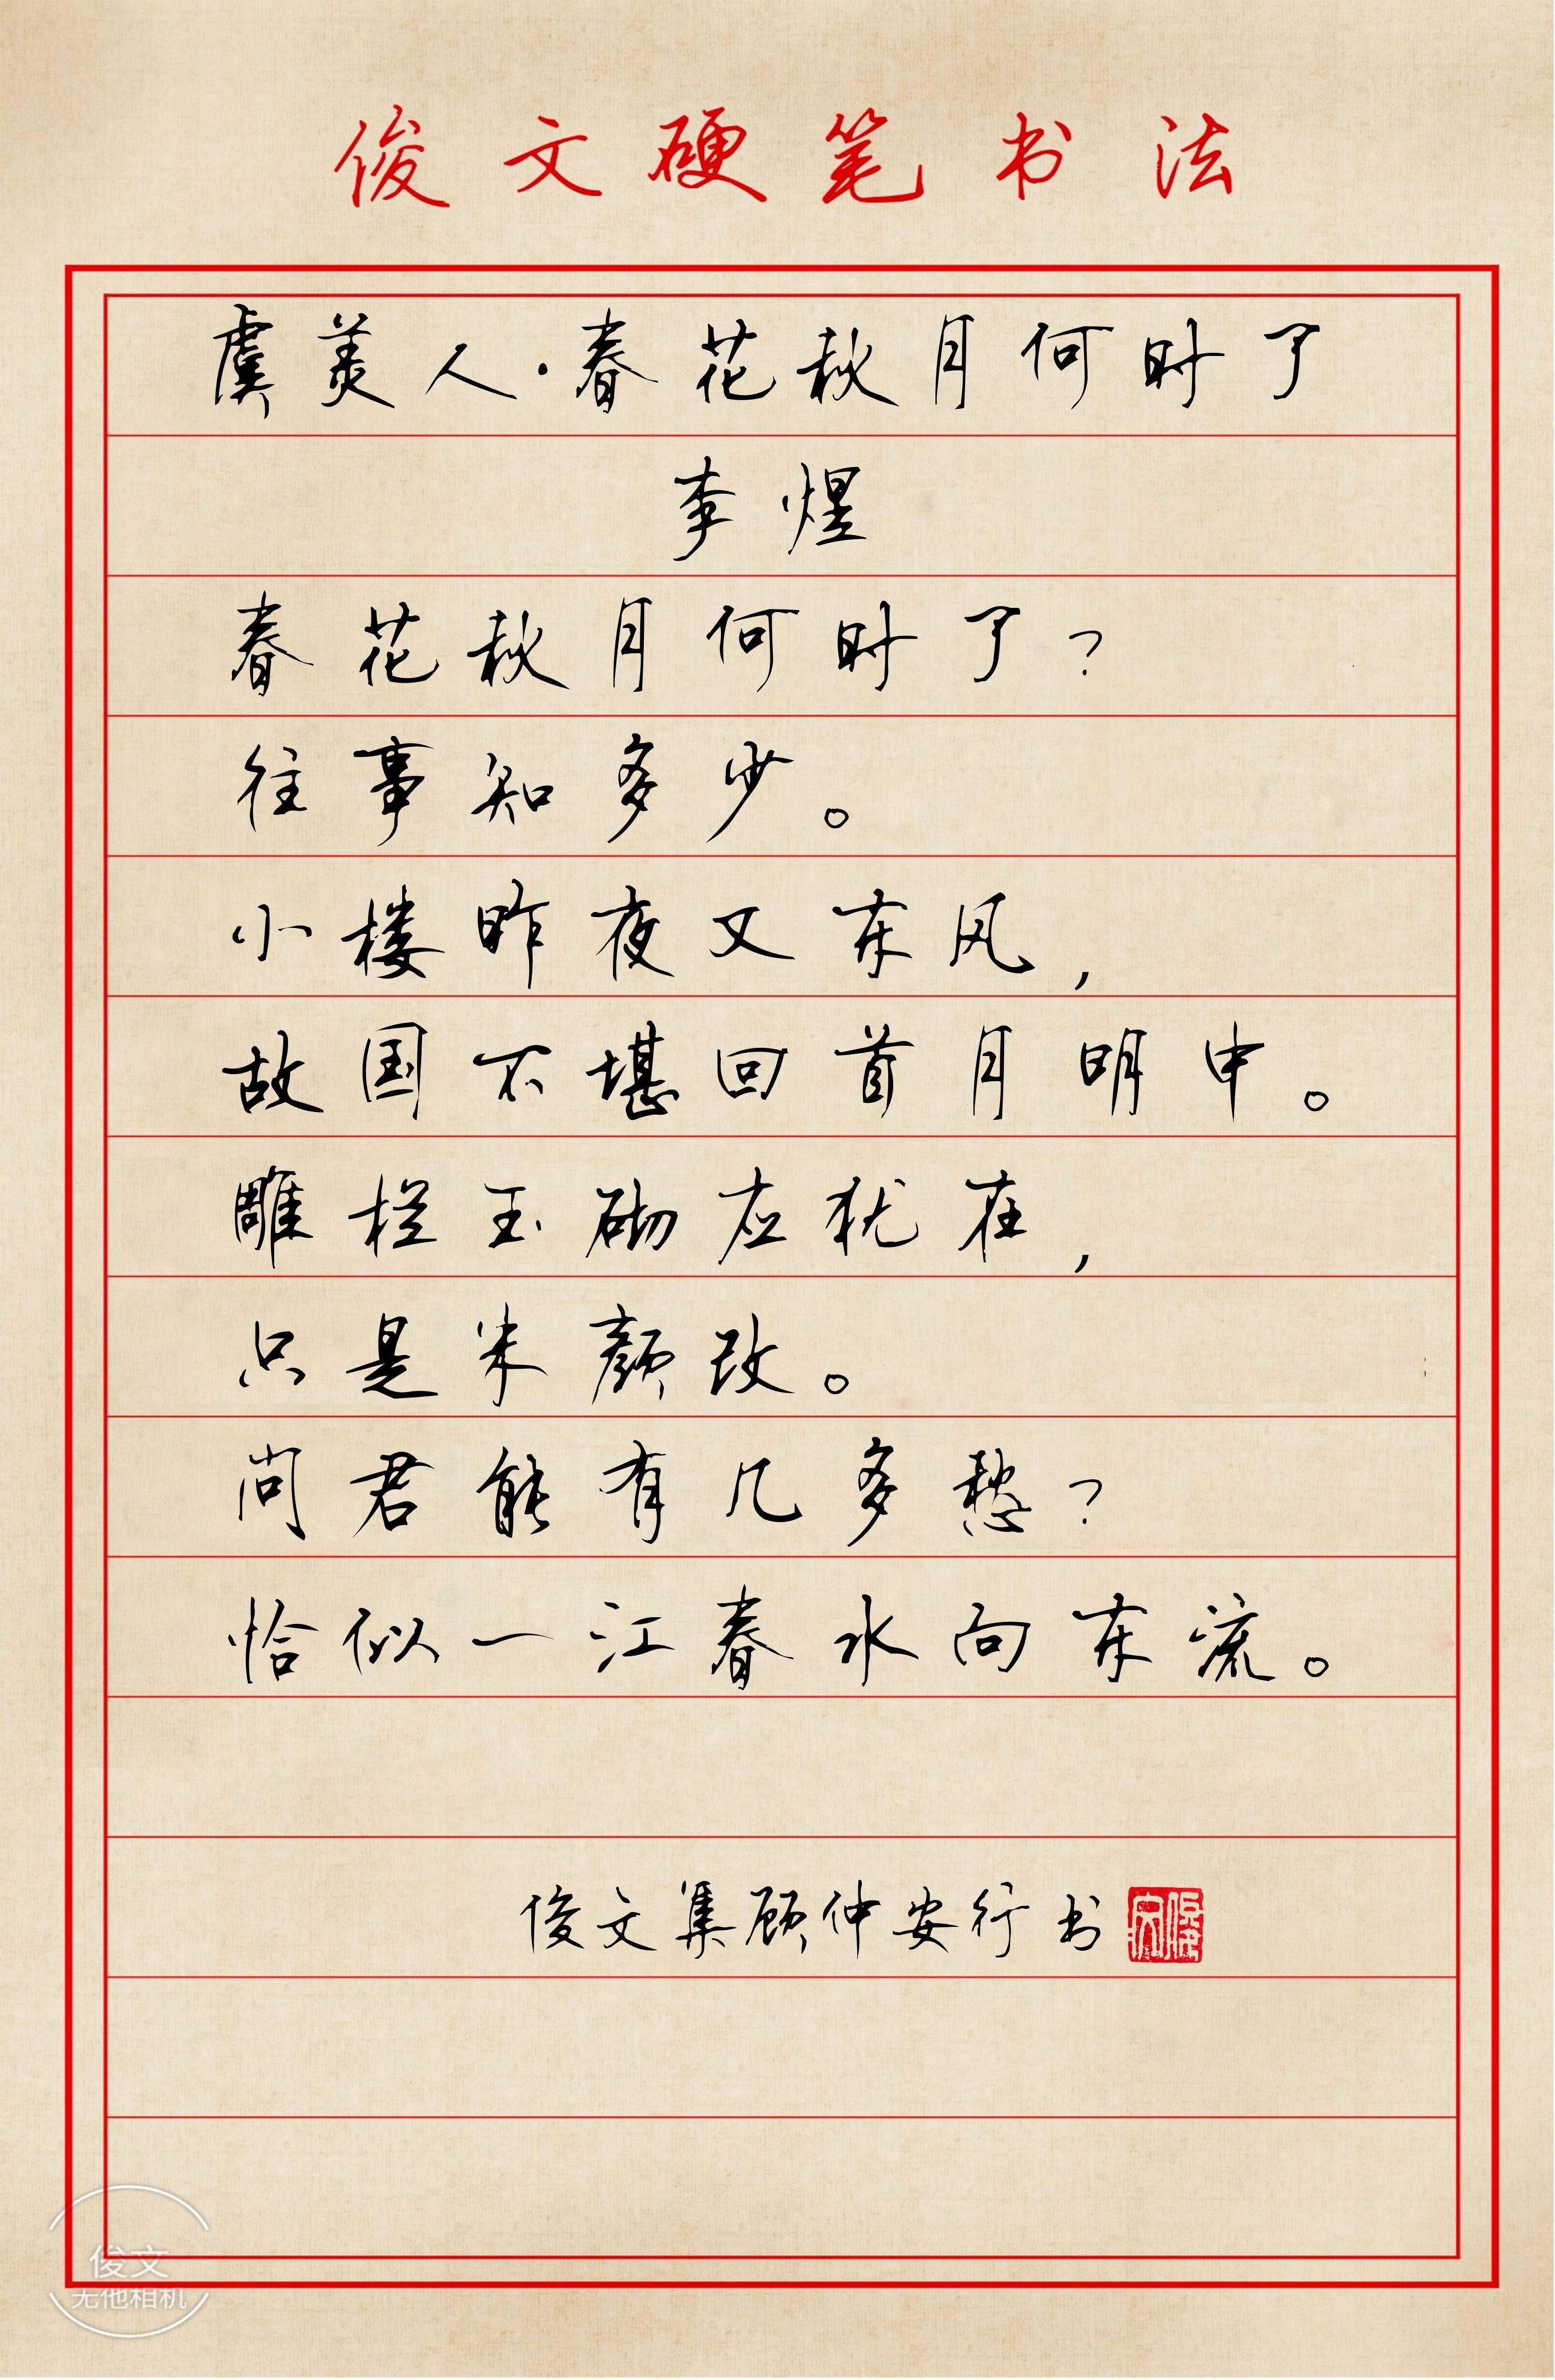 俊文硬笔书法
虞美人·春花秋月何时了
李煜
春花秋月何时了?
往事知多少。
小楼昨夜又东风,
故国不堪回首月明中。
雕栏玉砌应犹在,
只是朱颜改。
问君能有几多愁?
恰似一江春水向东流。
俊文集顾仲安行书
俊文
俊文
无他相机